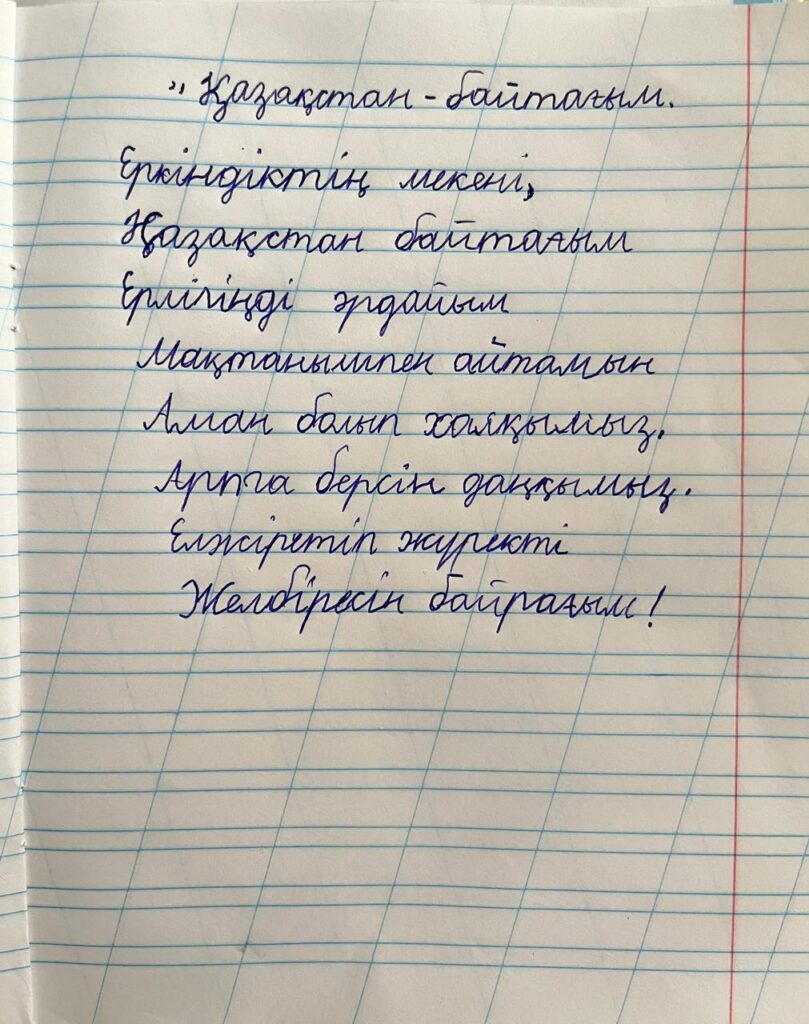 „Қазақстан - байтағым.
Еркіндіктің мекені,
Қазақстан байтағым
Ерлігіңді әрдайым
Мақтанышпен айтамын
Аман болып халқымыз.
Артта берсін даңқымыз.
Елжіретіп жүректі
Желбіресін байрағым!